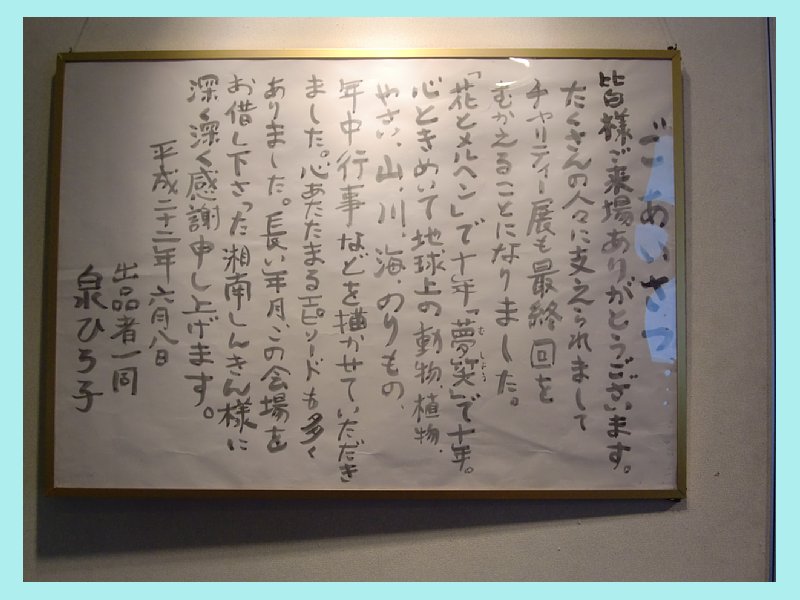 ごあいさつ
皆様ご来場ありがとうございます。
たくさんの人々に支えられまして
チャリティー展も最終回を
むかえることになりました。
「花とメルヘン」で十年「夢笑」で十年。
むしょう
心ときめいて地球上の動物、植物、
やさい、山、川、海、のりもの、
年中行事などを描かせていただき
ました。心あたたまるエピソードも多く
ありました。長い年月、この会場を
お借し下さった湘南しんきん様に
深く深く感謝申し上げます。
平成二十二年六月八日
出品者一同
泉ひろ子